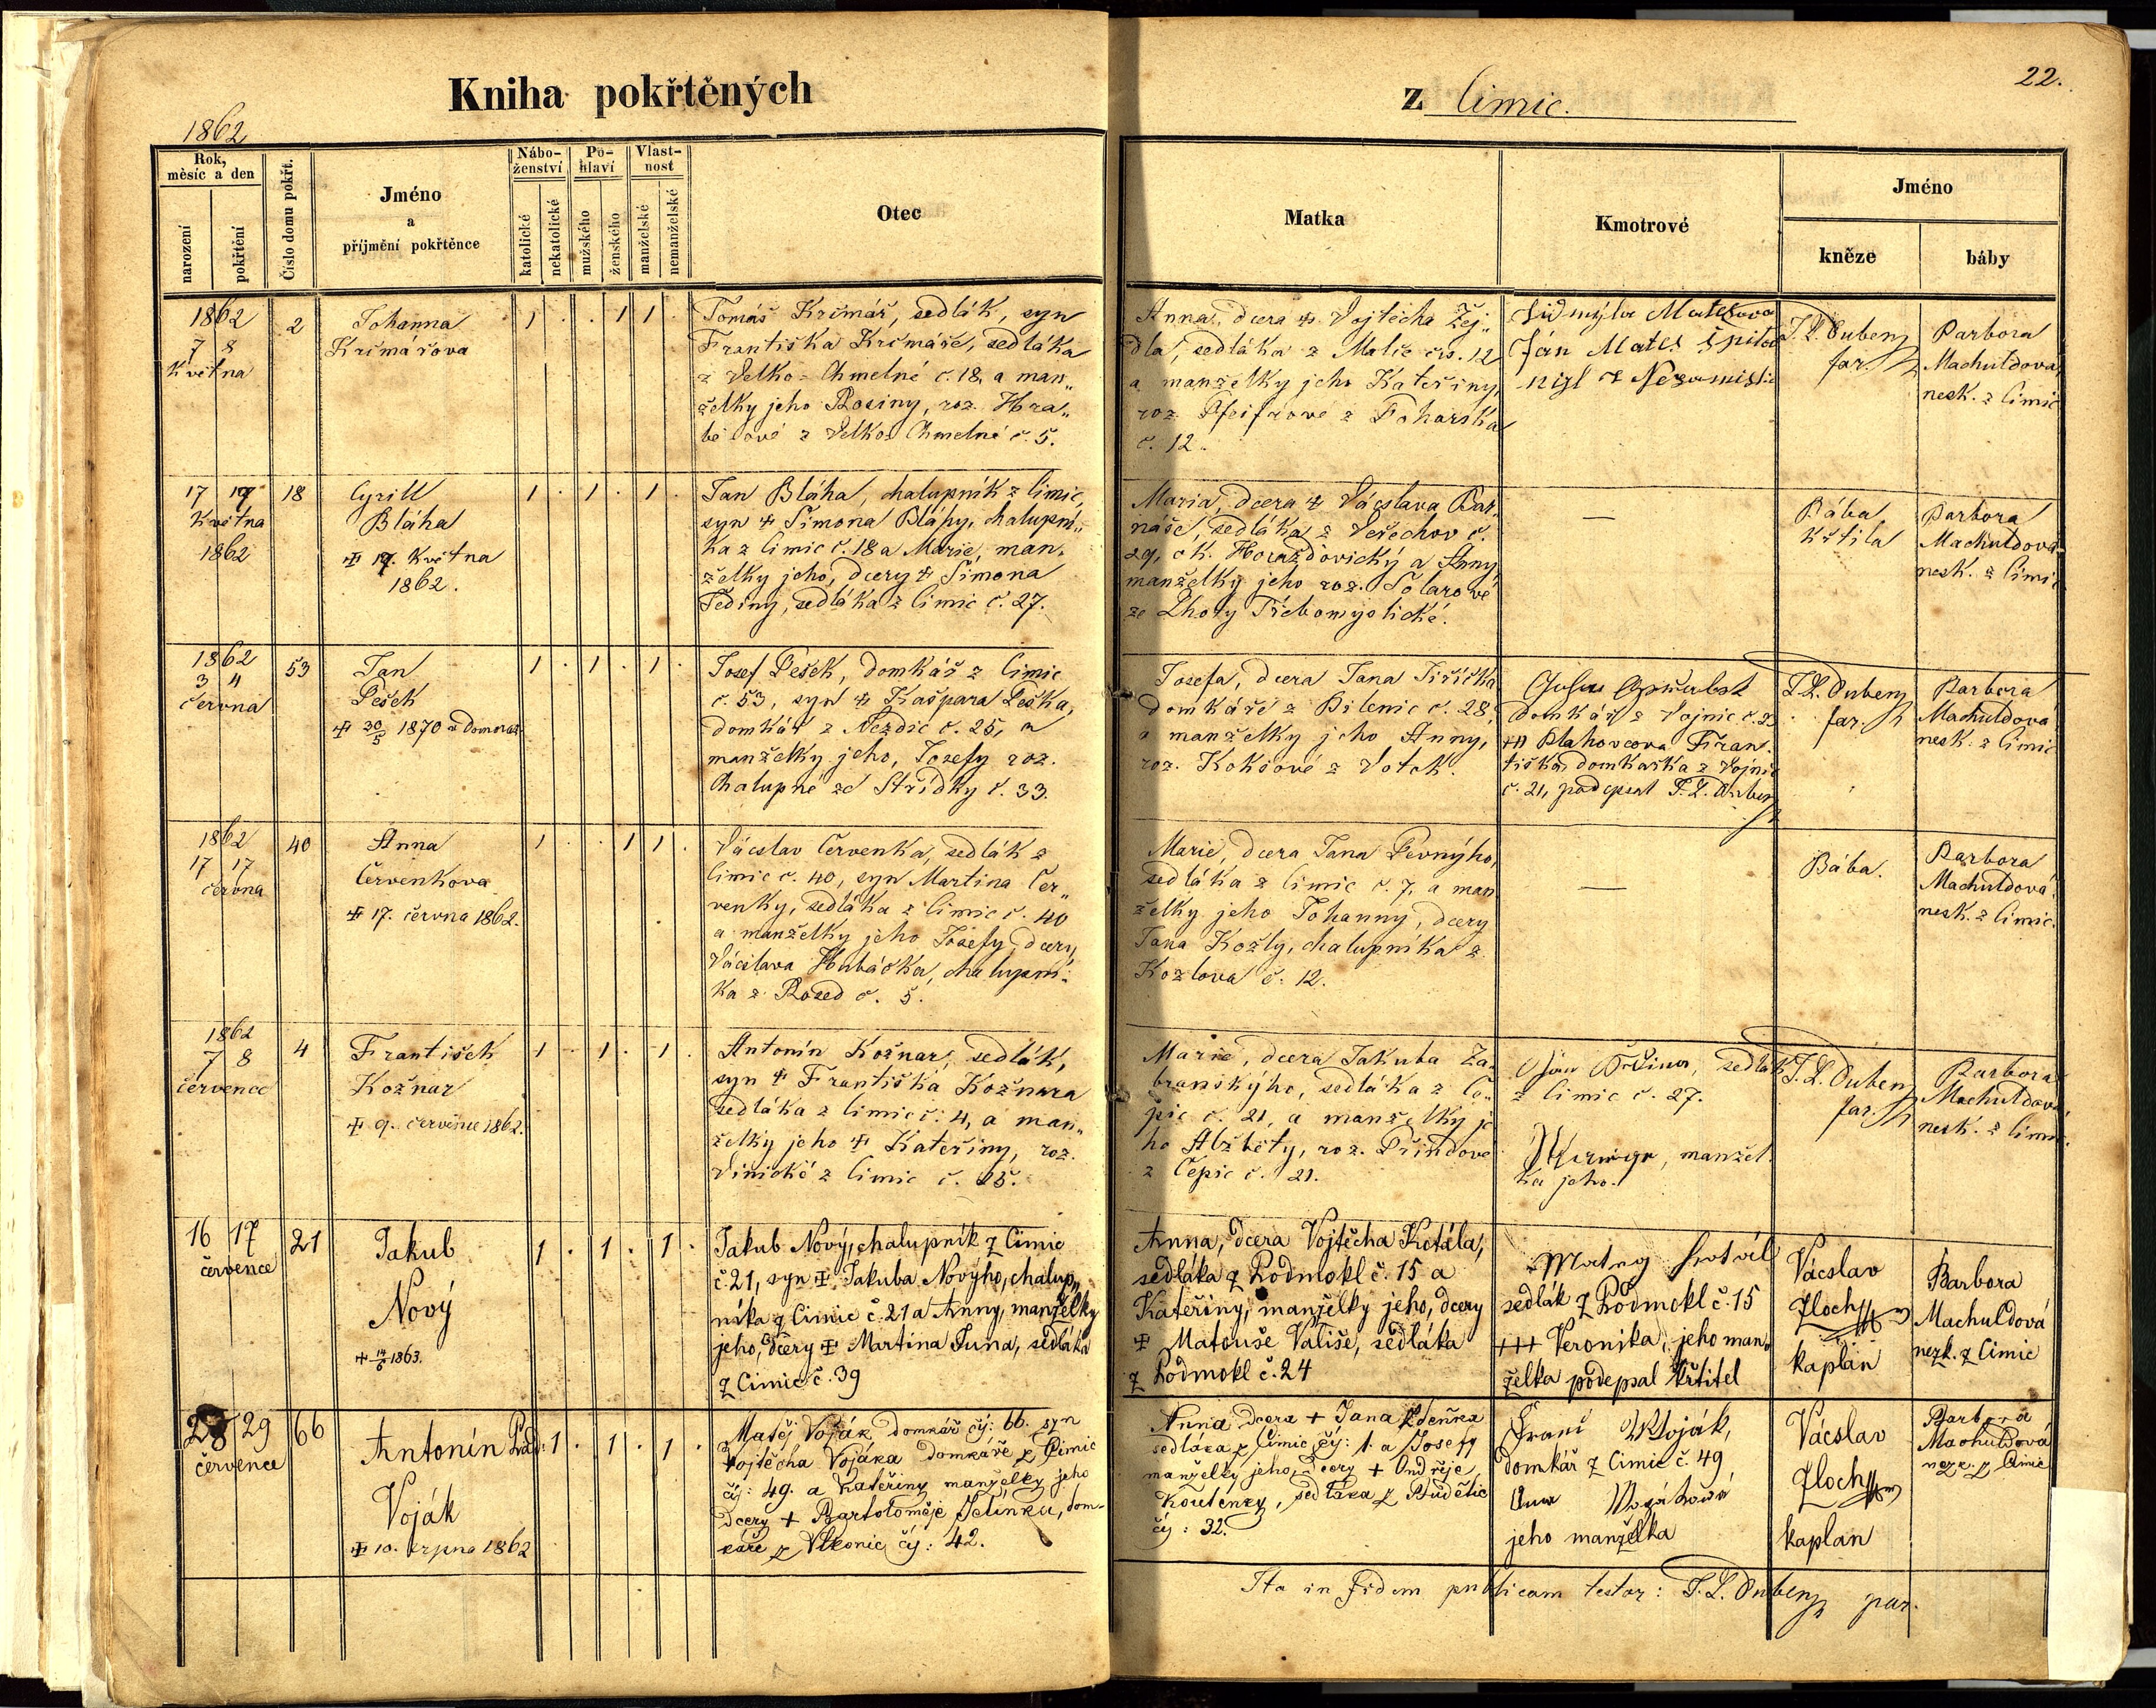 Kniha pokřtěných
z Cimic.
22.
1862
Rok,
měsíc a den
narození
pokřtění
Číslo domu pokřt.
Jméno
a
příjmění pokřtěnce
Nábo-
ženství
katolické
nekatolické
Po-
hlaví
mužského
ženského
Vlast-
nost
manželské
nemanželské
Otec
Matka
Kmotrové
Jméno
kněze
báby
1862
7 8
Května
2
Johanna
Krčmářova
1 . . 1 1 .
Tomáš Krčmář, sedlák, syn
Františka Krčmáře, sedláka
z Velko-Chmelné č. 18, a man„
želky jeho Rosiny, roz. Hra„
bě ové z Velko Chmelné č. 5.
Anna, dcera + Vojtěcha Žej„
dla, sedláka z Malče čís. 12
a manželky jeho Kateřiny,
roz. Pfeifrové z
č. 12.
Lidmyla
Ján
z
J. L. Dubenz
far.
Barbora
Machuldová
nesk. z Cimic
17 17
Května
1862
18
Cyrill
Bláha
+ 17. Května
1862.
1 . 1 . 1 .
Jan Bláha, chalupník z Cimic,
syn + Šimona Bláhy, chalupní„
ka z Cimic č. 18 a Marie, man„
želky jeho, dcery + Šimona
sedláka z Cimic č. 27.
Maria, dcera + Vácslava Bar„
náše, sedláka z č.
29, ok. Horažďovický a Anny
manželky jeho roz. Tolarové
ze Lhoty Třebomyslické.
—
Bába
křtila
Barbora
Machuldová
nesk. z Cimic
1862
3 4
června
53
Jan
Pešek
+ 30/5 1870
1 . 1 . 1 .
Josef Pešek, domkář z Cimic
č. 53, syn + Kašpara Peška,
domkář z Nezdic č. 25, a
manželky jeho, Josefy roz.
Chalupné ze Střídky č. 33.
Josefa, dcera Jana Jiřička
domkáře z Bilenic č. 28,
a manželky jeho Anny,
roz. z Volek.
domkář z Vojnic č. 23
+++ Plahovcova Fran„
tiška domkářka z Vojnic
č. 21, podepsal J. L. Dubenz
J. L. Dubenz
far.
Barbora
Machuldová
nesk. z Cimic
1862
17 17
června
40
Anna
Červenkova
+ 17. června 1862.
1 . . 1 1 .
Vácslav Červenka, sedlák z
Cimic č. 40, syn Martina Čer„
venky, sedláka z Cimic č. 40
a manželky jeho Josefy, dcery
Vácslava Hubáčka, chalupní„
ka z Rozsed č. 5.
Marie, dcera Jana Pevnýho,
sedláka z Cimic č. 7, a man
želky jeho Johanny, dcery
Jana Kožly, chalupníka z
Kozlova č. 12.
—
Bába.
Barbora
Machuldová
nesk. z Cimic.
1862
7 8
července
4
František
Kožnar
+ 9. července 1862.
1 . 1 . 1 .
Antonín Kožnar, sedlák,
syn + Františka Kožnara
sedláka z Cimic č. 4, a man„
želky jeho + Kateřiny, roz.
z Cimic č.
Marie, dcera Jakuba Za„
branskýho, sedláka z Če„
pic č. 21, a manželky je
ho Alžběty, roz. Přindové
z Čepic č. 21.
Jan sedlák
z Cimic č. 27.
manžel
ka jeho.
J. L. Dubenz
far.
Barbora
Machuldová
nesk. z Cimic.
16 17
července
21
Jakub
Nový
+ 14/6 1863.
1 . 1 . 1 .
Jakub Nový, chalupník z Cimic
č. 21, syn + Jakuba Novýho, chalup„
níka z Cimic č. 21 a Anny, manželky
jeho, dcery + Martina Juna, sedláka
z Cimic č. 39
Anna, dcera Vojtěcha Kotála,
sedláka z Podmokl č. 15 a
Kateřiny, manželky jeho, dcery
+ Matouše Vališe, sedláka
z Podmokl č. 24
sedlák z Podmokl č. 15
+++ Veronika, jeho man„
želka podepsal křtitel
Vácslav
Zloch
kaplan
Barbora
Machuldová
nezk. z Cimic
28 29
července
66
Antonín
Voják
+ 10. srpna 1862
1 . 1 . 1 .
Matěj Voják domkář čj: 66. syn
Vojtěcha Vojáka domkáře z Cimic
čj: 49. a Kateřiny manželky jeho
dcery + Bartoloměje Jelínka, dom„
káře z Vlkonic čj: 42.
Anna dcera + Jana Zdeňka
sedláka z Cimic čj: 1. a Josefy
manželky jeho, dcery + Ondřeje
Koutenky, sedláka z Budětic
čj: 32.
Franc Woják,
domkář z Cimic č. 49
jeho manželka
Vácslav
Zloch
kaplan
Barbora
Machuldová
nezk. z Cimic
Ita in fidem publicam testor: J. L. Dubenz par.